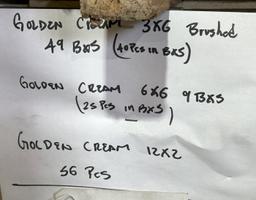 GOLDEN CREAM 3X6 Brushed
49 BXS (40 Pcs in BXS)
GOLDEN CREAM 6X6 9 BXS
(25 Pcs in BXS)
GOLDEN CREAM 12X2
56 Pcs